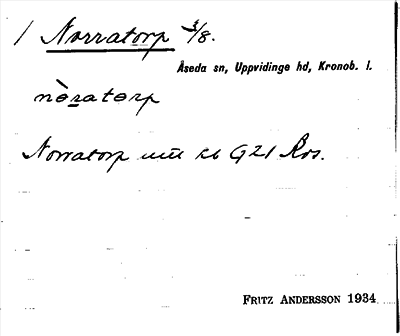 / Norratorp 3/8.
Åseda sn, Uppvidinge hd, Kronob. l.
nòratorp
Norratorp utt kb G21 Ros.
FRITZ ANDERSSON 1934